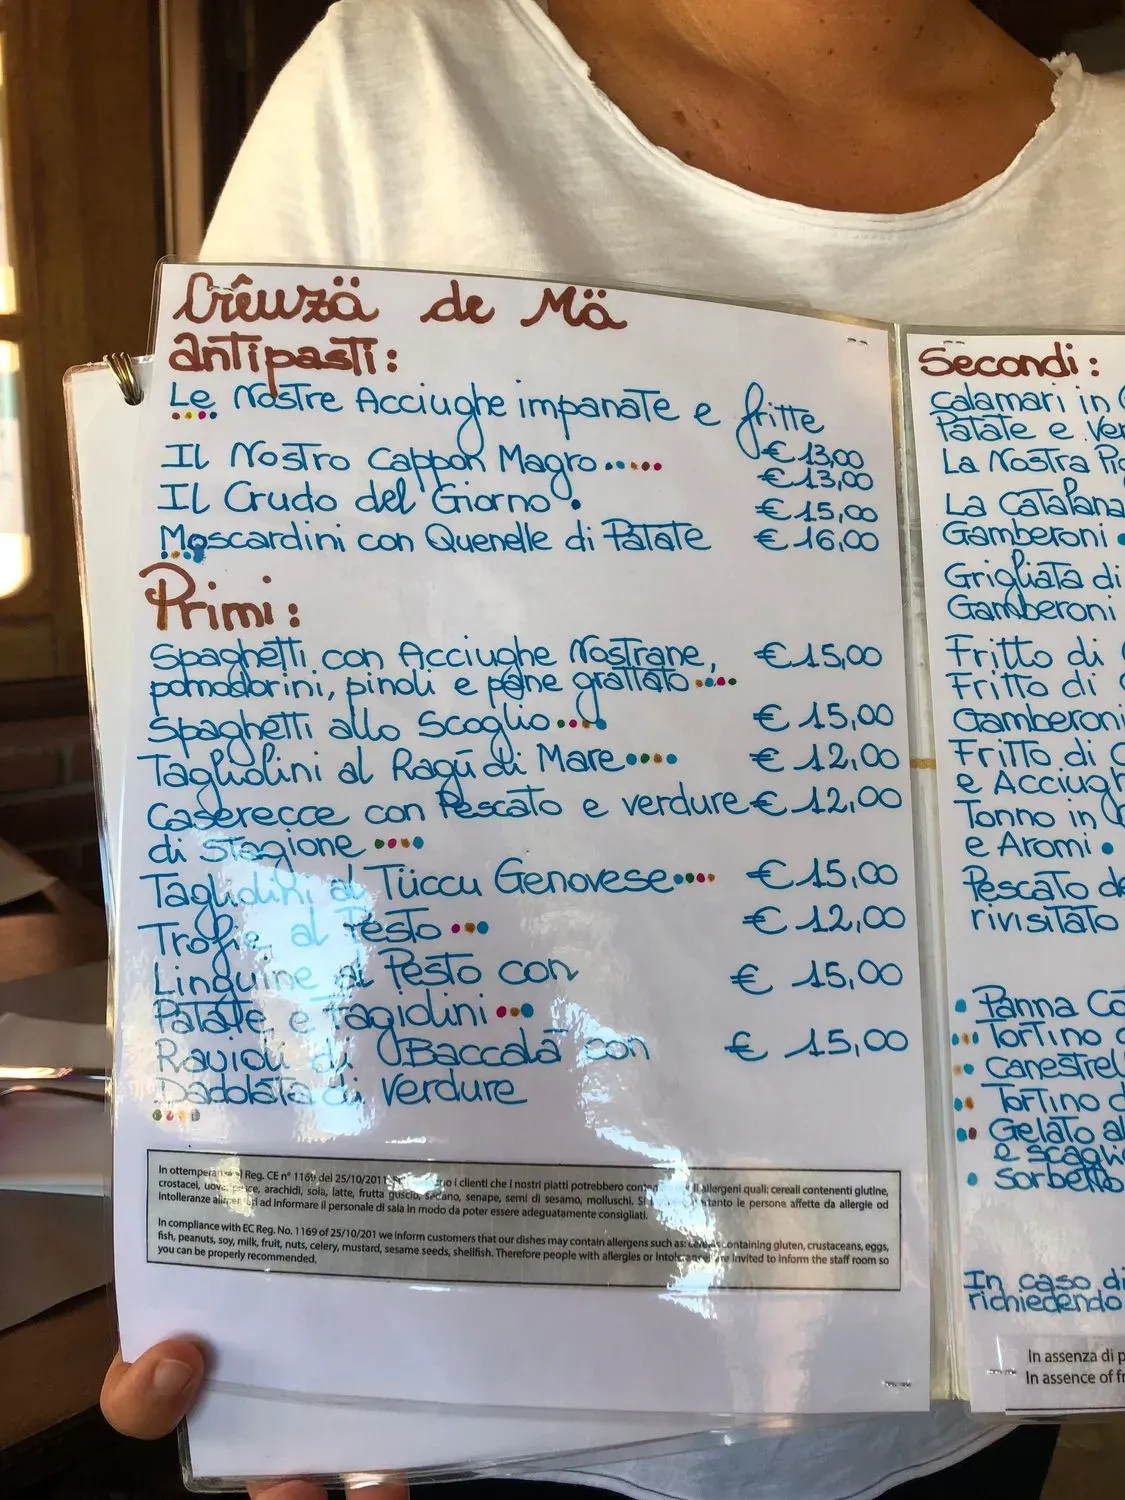 Crêuzä de Mä
antipasti:
Le Nostre Acciughe impanate e fritte
€ 13,00
Il Nostro Cappon Magro € 13,00
Il Crudo del Giorno € 15,00
Moscardini con Quenelle di Patate € 16,00
Primi:
Spaghetti con Acciughe Nostrane, € 15,00
pomodorini, pinoli e pane grattato
Spaghetti allo Scoglio € 15,00
Tagliolini al Ragù di Mare € 12,00
Caserecce con Pescato e verdure € 12,00
di stagione
Tagliolini al Tüccu Genovese € 15,00
Trofie al Pesto € 12,00
Linguine al Pesto con € 15,00
Patate e Fagiolini
Ravioli di Baccalà con € 15,00
Dadolata di Verdure
In ottemperanza al Reg. CE n° 1169 del 25/10/2011 i clienti che i nostri piatti potrebbero allergeni quali: cereali contenenti glutine,
crostacei, uova, pesce, arachidi, soia, latte, frutta guscio, sedano, senape, semi di sesamo, molluschi. le persone affette da allergie od
intolleranze alimentari ad informare il personale di sala in modo da poter essere adeguatamente consigliati.
In compliance with EC Reg. No. 1169 of 25/10/201 we inform customers that our dishes may contain allergens such as: cereals containing gluten, crustaceans, eggs,
fish, peanuts, soy, milk, fruit, nuts, celery, mustard, sesame seeds, shellfish. Therefore people with allergies or intolerances are invited to inform the staff room so
you can be properly recommended.
Secondi:
Calamari in
Patate e
La Nostra
La Catalana
Gamberoni
Grigliata di
Gamberoni
Fritto di
Fritto di
Gamberoni
Fritto di
e Acciugh
Tonno in
e Aromi
Pescato
rivisitato
Panna
Tortino
Canestrel
Tortino
Gelato al
e scagli
Sorbetto
In caso di
richiedendo
In assenza di
In assence of